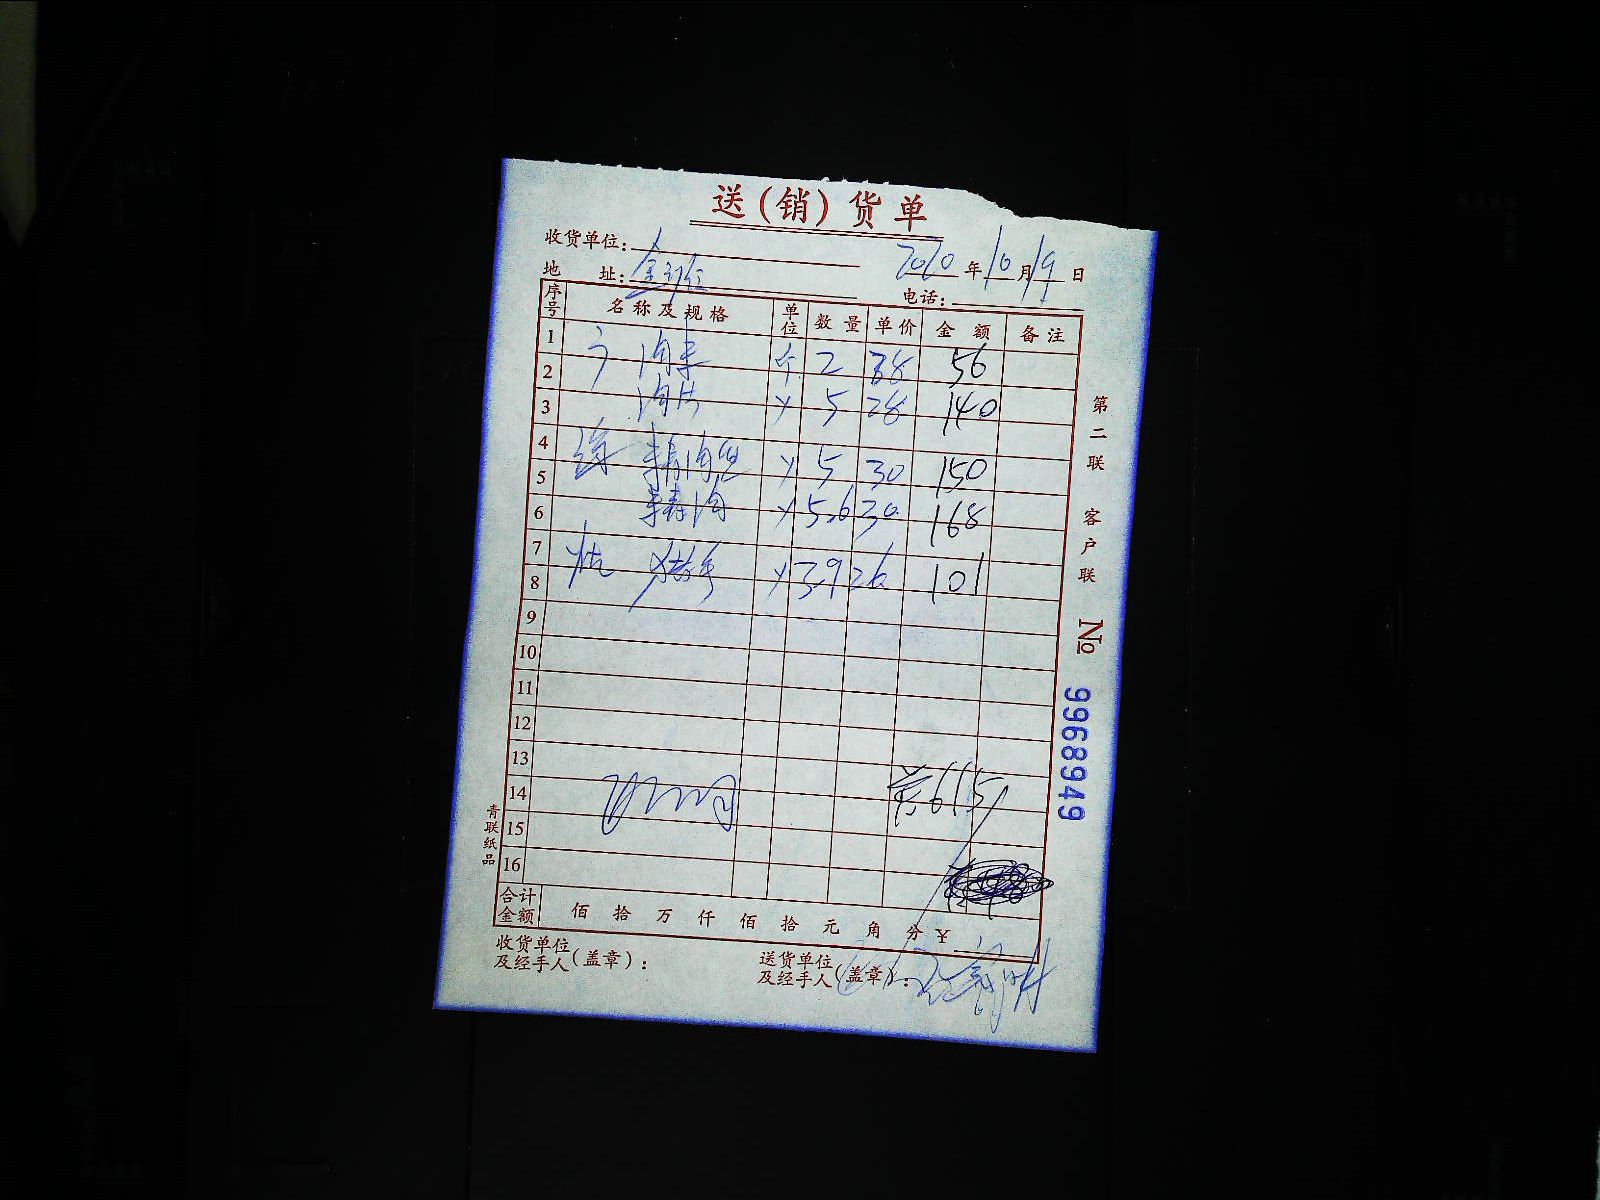 送（销）货单
收货单位：
2020 年 10 月 19 日
地 址：
电话：
序号 名称及规格 单位 数量 单价 金额 备注
1
2 个 2 38 56
3 肉片 5 28 140
4
5 5 30 150
6 精肉 5.6 30 168
7
8 猪手 3.9 26 101
9
10
11
12
13
14 615
15
16
合计金额 佰 拾 万 仟 佰 拾 元 角 分 ¥
收货单位及经手人（盖章）：
送货单位及经手人（盖章）：
第二联 客户联
№ 9968949
青联纸品